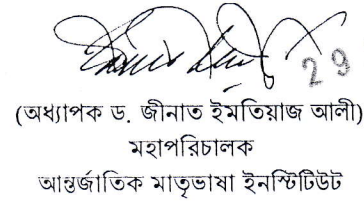 29
(অধ্যাপক ড. জীনাত ইমতিয়াজ আলী)
মহাপরিচালক
আন্তর্জাতিক মাতৃভাষা ইনস্টিটিউট